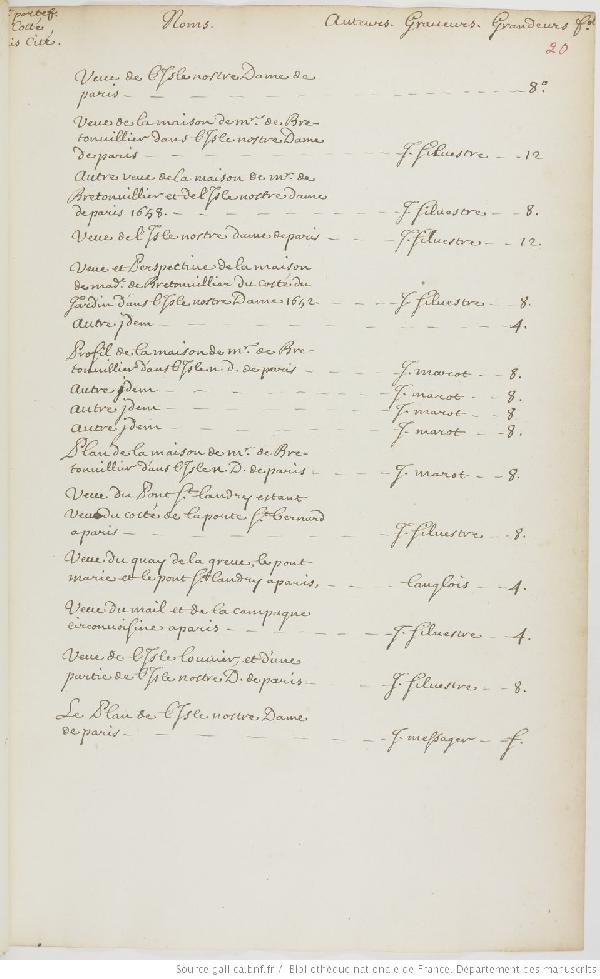 portef. Noms. Auteurs. Graueurs. Grandeurs fo.
Cotté
is Cité.
20
Veue de l'Isle nostre Dame de
paris 8.o
Veue de la maison de mr. de Bre-
tonuillier dans l'Isle nostre Dame
de paris J. siluestre 12
Autre veue de la maison de mr. de
Bretonuillier et de l'Isle nostre dame
de paris 1658. J. siluestre 8.
Veue de l'Isle nostre dame de paris J. siluestre 12.
Veue et Perspectiue de la maison
de mad. de Bretonuillier du costé du
Jardin dans l'Isle nostre Dame 1652 J. siluestre 8.
Autre jdem 4.
Profil de la maison de mr. de Bre-
tonuillier dans l'Isle n. D. de paris J. marot 8.
Autre jdem J. marot 8.
Autre jdem J. marot 8
Autre jdem J. marot 8.
Plan de la maison de mr. de Bre-
tonuillier dans l'Isle n. D. de paris J. marot 8.
Veue du Pont St. landry estant
Veu du costé de la porte St. bernard
a paris J. siluestre 8.
Veue du quay de la greue, le pont
marie et le pont St. landry a paris, langlois 4.
Veue du mail et de la campagne
circonuoisine a paris J. siluestre 4.
Veue de l'Isle louuier, et d'une
partie de l'Isle nostre D. de paris J. siluestre 8.
Le Plan de l'Isle nostre Dame
de paris J. messager f.
Source gallica.bnf.fr / Bibliothèque nationale de France. Département des manuscrits